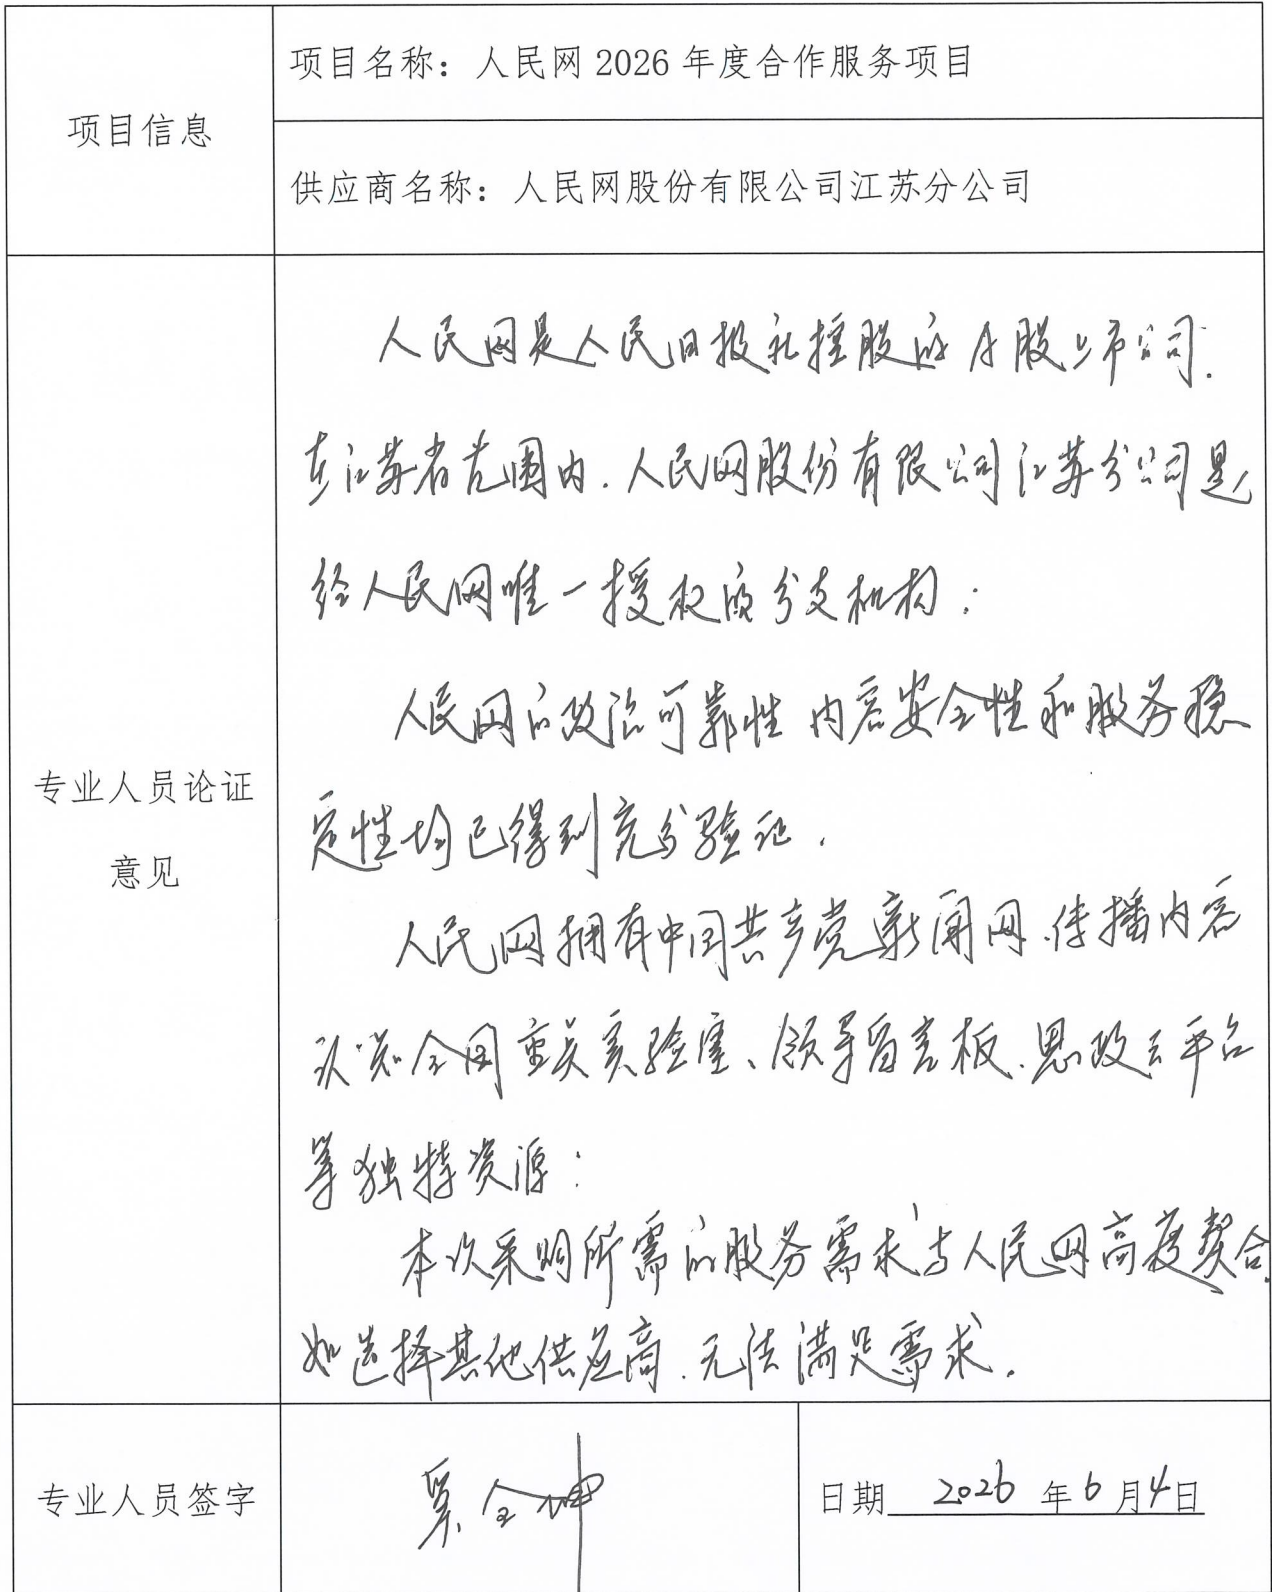 项目信息
项目名称：人民网 2026 年度合作服务项目
供应商名称：人民网股份有限公司江苏分公司
专业人员论证
意见
人民网是人民日报社控股的A股上市公司.
在江苏省范围内.人民网股份有限公司江苏分公司是
经人民网唯一授权的分支机构；
人民网的政治可靠性 内容安全性和服务稳
定性均已得到充分验证.
人民网拥有中国共产党新闻网、传播内容
认知全国重点实验室、领导留言板、思政云平台
等独特资源；
本次采购所需的服务需求与人民网高度契合.
如选择其他供应商.无法满足需求.
专业人员签字
全坤
日期 2026 年 6 月 4 日